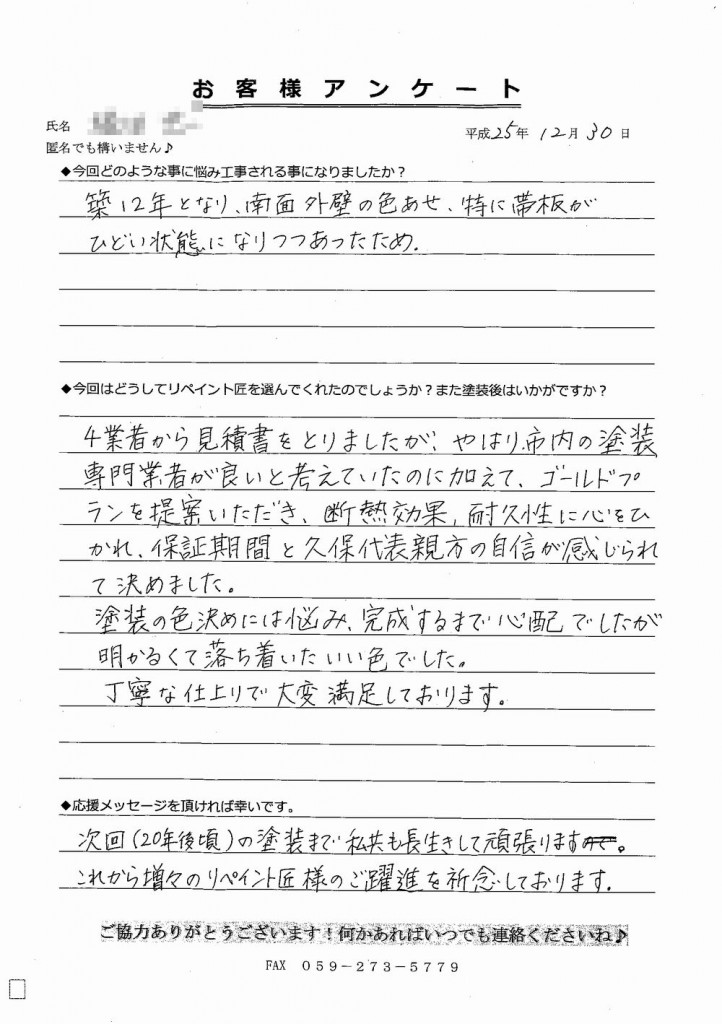 お客様アンケート
氏名
平成25年12月30日
匿名でも構いません♪
◆今回どのような事に悩み工事される事になりましたか？
築12年となり、南面外壁の色あせ、特に帯板が
ひどい状態になりつつあったため.
◆今回はどうしてリペイント匠を選んでくれたのでしょうか？また塗装後はいかがですか？
4業者から見積書をとりましたが、やはり市内の塗装
専門業者が良いと考えていたのに加えて、ゴールドプ
ランを提案いただき、断熱効果，耐久性に心をひ
かれ、保証期間と久保代表親方の自信が感じられ
て決めました。
塗装の色決めには悩み、完成するまで心配でしたが
明かるくて落ち着いたいい色でした。
丁寧な仕上りで大変満足しております。
◆応援メッセージを頂ければ幸いです。
次回（20年後頃）の塗装まで私共も長生きして頑張ります。
これから増々のリペイント匠様のご躍進を祈念しております.
ご協力ありがとうございます！何かあればいつでも連絡くださいね♪
FAX 059－273－5779